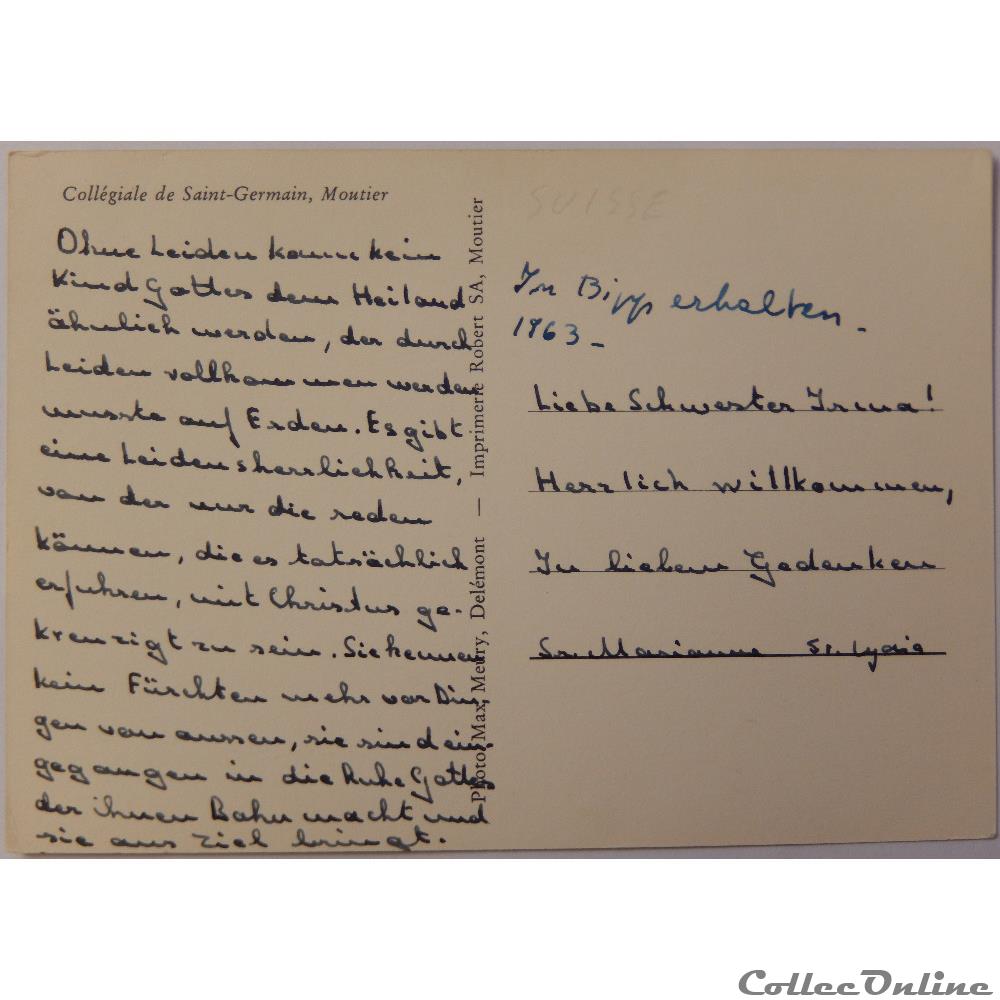 Collégiale de Saint-Germain, Moutier
Ohne Leiden kann kein
Kind Gottes dem Heiland
ähnlich werden, der durch
Leiden vollkommen werden
musste auf Erden. Es gibt
eine Leidensherrlichkeit,
von der nur die reden
können, die es tatsächlich
erfuhren, mit Christus ge-
kreuzigt zu sein. Sie kennen
kein Fürchten mehr vor Din-
gen von aussen, sie sind ein-
gegangen in die Ruhe Gottes
der ihnen Bahn macht und
sie ans Ziel bringt.
Photo: Max Meury, Delémont — Imprimerie Robert SA, Moutier
SUISSE
In Bipp erhalten.
1963 -
Liebe Schwester Irma!
Herzlich willkommen,
In lieben Gedenken
Sr. Marianne Sr. Lydia
CollecOnline